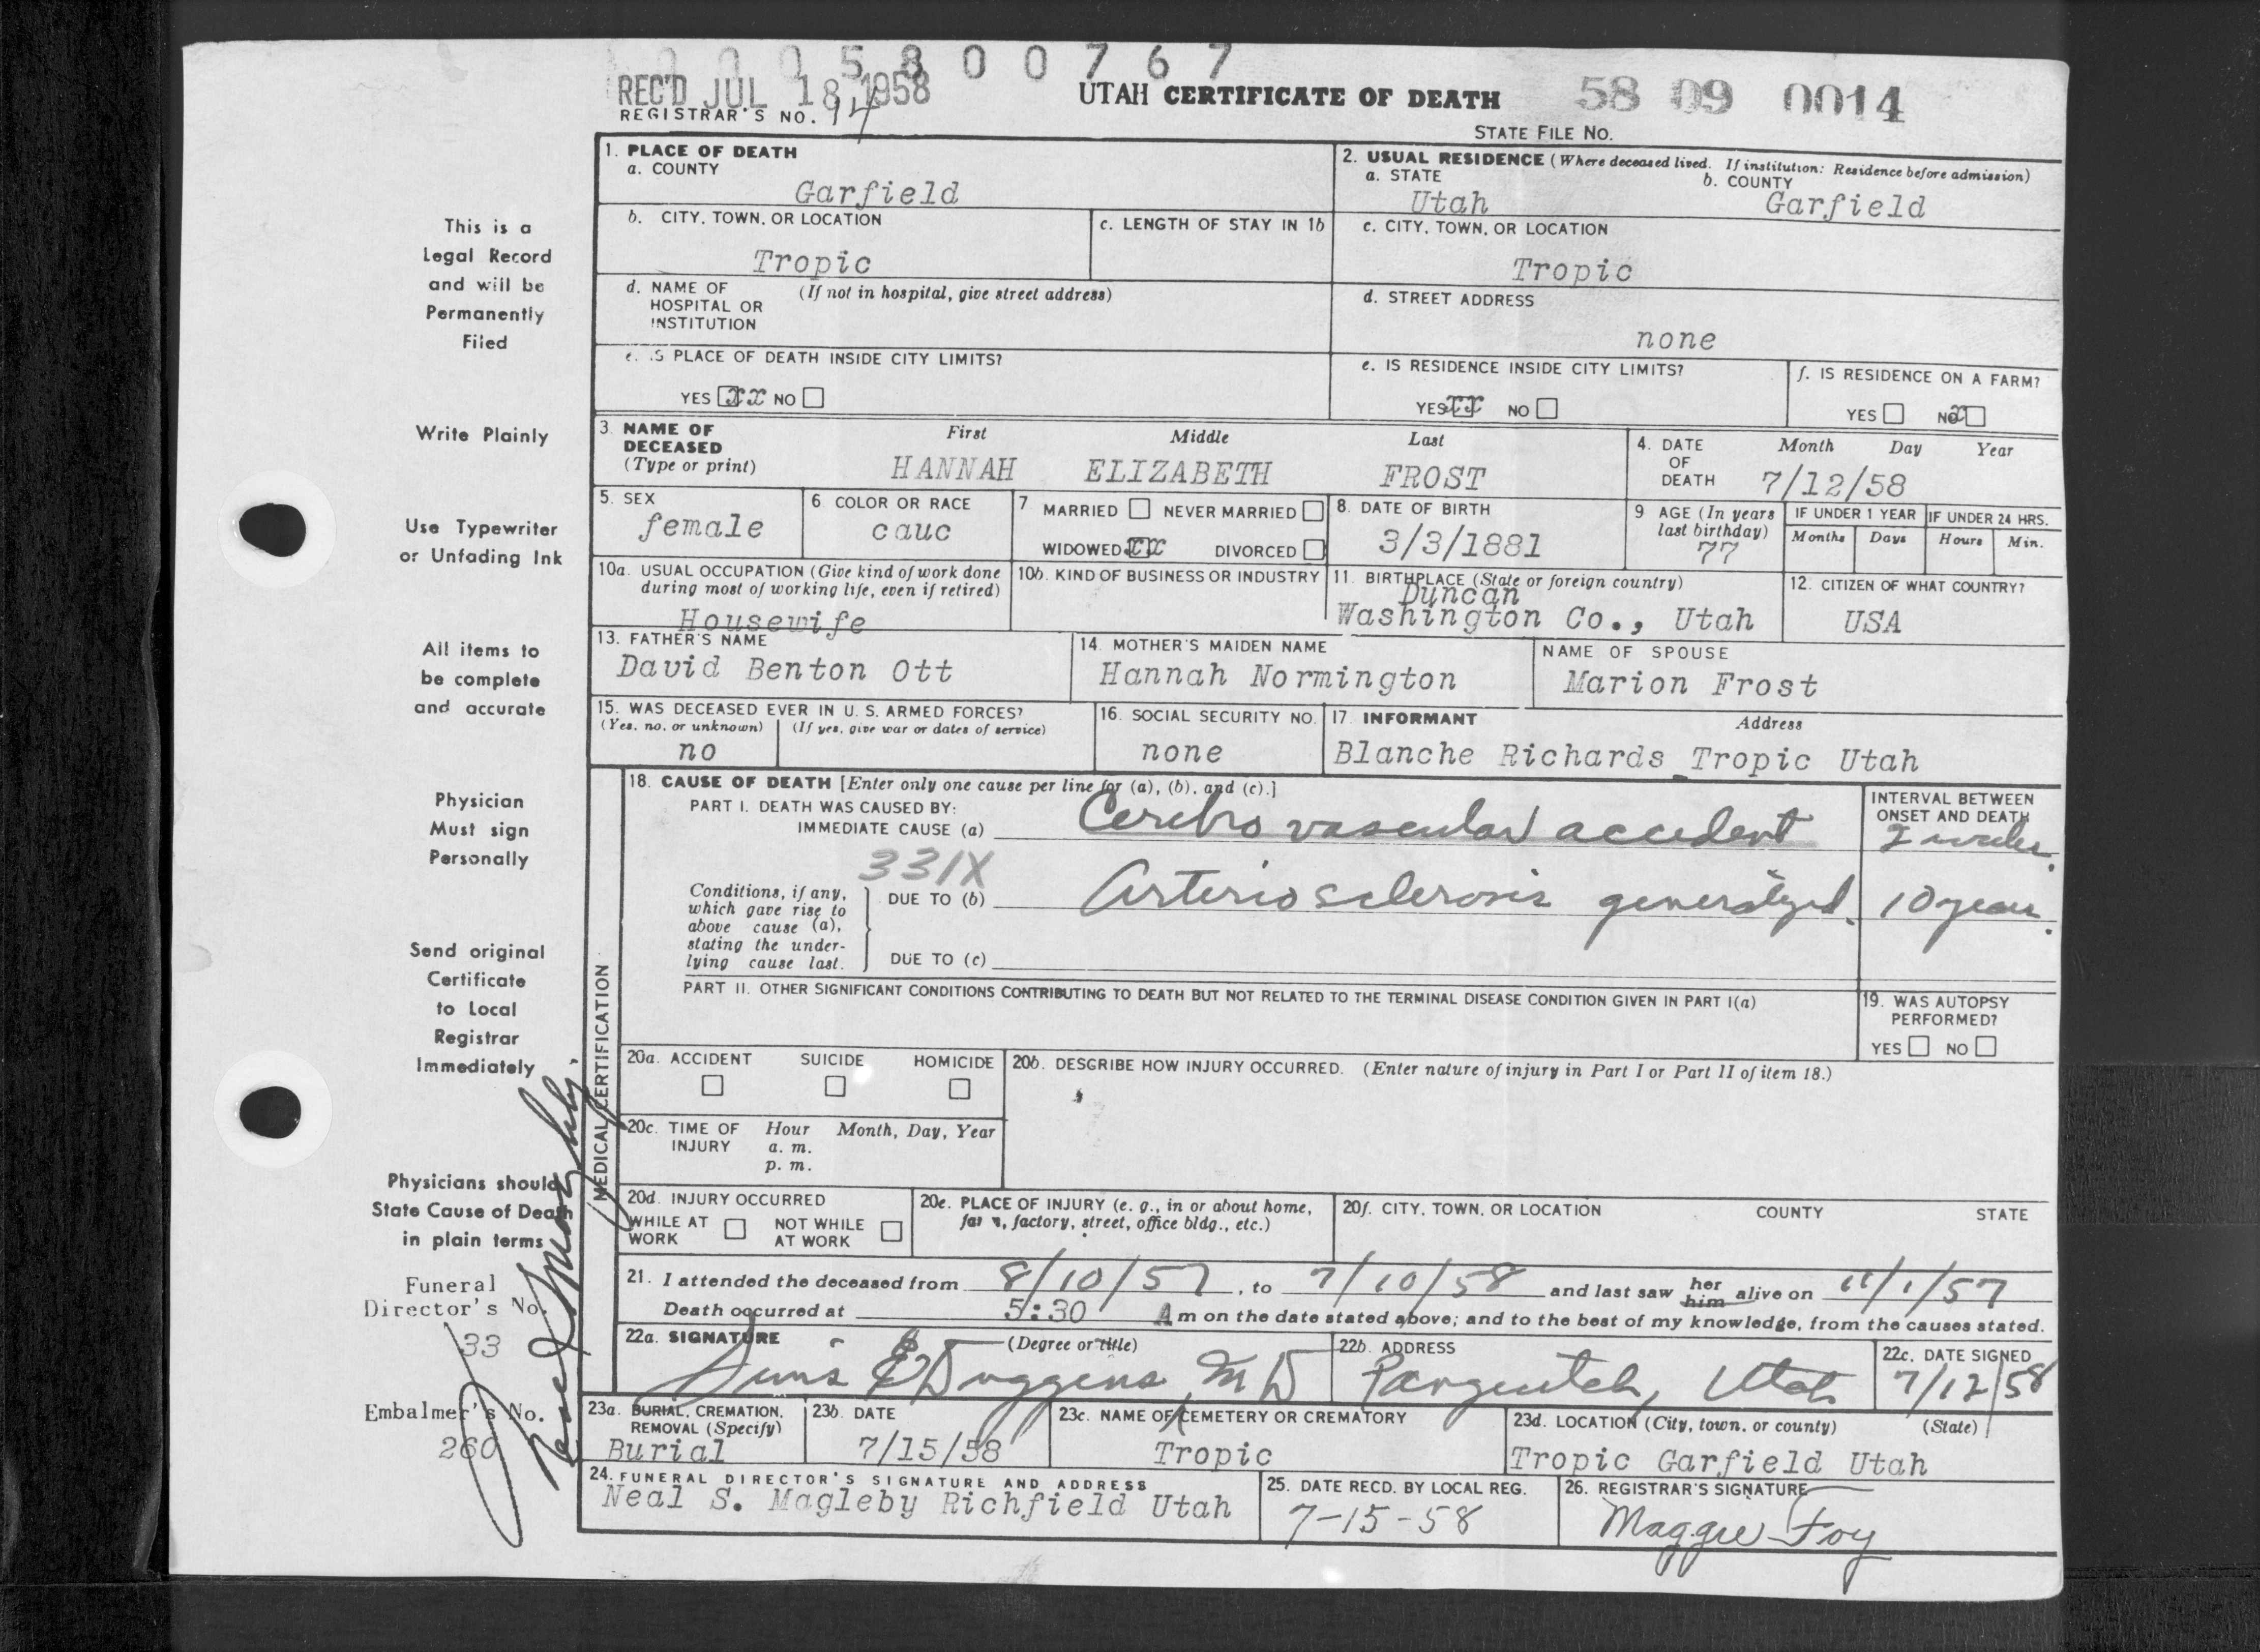 0 0 0 5 8 0 0 7 6 7
REC'D JUL 18 1958
UTAH CERTIFICATE OF DEATH 58 09 0014
REGISTRAR'S NO. 14
STATE FILE NO.
This is a
Legal Record
and will be
Permanently
Filed
Write Plainly
Use Typewriter
or Unfading Ink
All items to
be complete
and accurate
Physician
Must sign
Personally
Send original
Certificate
to Local
Registrar
Immediately
Physicians should
State Cause of Death
in plain terms
Funeral
Director's No.
33
Embalmer's No.
260
1. PLACE OF DEATH
a. COUNTY
Garfield
2. USUAL RESIDENCE (Where deceased lived. If institution: Residence before admission)
a. STATE b. COUNTY
Utah Garfield
b. CITY, TOWN, OR LOCATION
Tropic
c. LENGTH OF STAY IN 1b
c. CITY, TOWN, OR LOCATION
Tropic
d. NAME OF (If not in hospital, give street address)
HOSPITAL OR
INSTITUTION
d. STREET ADDRESS
none
e. IS PLACE OF DEATH INSIDE CITY LIMITS?
YES xx NO
e. IS RESIDENCE INSIDE CITY LIMITS?
YES xx NO
f. IS RESIDENCE ON A FARM?
YES NO x
3. NAME OF First Middle Last
DECEASED
(Type or print) HANNAH ELIZABETH FROST
4. DATE Month Day Year
OF
DEATH 7/12/58
5. SEX
female
6 COLOR OR RACE
cauc
7 MARRIED NEVER MARRIED
WIDOWED xx DIVORCED
8. DATE OF BIRTH
3/3/1881
9 AGE (In years
last birthday)
77
IF UNDER 1 YEAR IF UNDER 24 HRS.
Months Days Hours Min.
10a. USUAL OCCUPATION (Give kind of work done
during most of working life, even if retired)
Housewife
10b. KIND OF BUSINESS OR INDUSTRY
11. BIRTHPLACE (State or foreign country)
Duncan
Washington Co., Utah
12. CITIZEN OF WHAT COUNTRY?
USA
13. FATHER'S NAME
David Benton Ott
14. MOTHER'S MAIDEN NAME
Hannah Normington
NAME OF SPOUSE
Marion Frost
15. WAS DECEASED EVER IN U. S. ARMED FORCES?
(Yes, no, or unknown) (If yes, give war or dates of service)
no
16. SOCIAL SECURITY NO.
none
17. INFORMANT Address
Blanche Richards Tropic Utah
MEDICAL CERTIFICATION
18. CAUSE OF DEATH [Enter only one cause per line for (a), (b), and (c).]
PART I. DEATH WAS CAUSED BY:
IMMEDIATE CAUSE (a) Cerebro vascular accident
INTERVAL BETWEEN
ONSET AND DEATH
2 weeks.
331X
Conditions, if any,
which gave rise to
above cause (a),
stating the under-
lying cause last.
DUE TO (b) Arteriosclerosis generalized. 10 years.
DUE TO (c)
PART II. OTHER SIGNIFICANT CONDITIONS CONTRIBUTING TO DEATH BUT NOT RELATED TO THE TERMINAL DISEASE CONDITION GIVEN IN PART I(a)
19. WAS AUTOPSY
PERFORMED?
YES NO
20a. ACCIDENT SUICIDE HOMICIDE
20b. DESCRIBE HOW INJURY OCCURRED. (Enter nature of injury in Part I or Part II of item 18.)
20c. TIME OF Hour Month, Day, Year
INJURY a. m.
p. m.
20d. INJURY OCCURRED
WHILE AT NOT WHILE
WORK AT WORK
20e. PLACE OF INJURY (e. g., in or about home,
farm, factory, street, office bldg., etc.)
20f. CITY, TOWN, OR LOCATION COUNTY STATE
21. I attended the deceased from 8/10/57, to 7/10/58 and last saw her him alive on 11/1/57
Death occurred at 5:30 A m on the date stated above; and to the best of my knowledge, from the causes stated.
22a. SIGNATURE (Degree or title)
Duggins, MD
22b. ADDRESS
Panguitch, Utah
22c. DATE SIGNED
7/12/58
23a. BURIAL, CREMATION,
REMOVAL (Specify)
Burial
23b. DATE
7/15/58
23c. NAME OF CEMETERY OR CREMATORY
Tropic
23d. LOCATION (City, town, or county) (State)
Tropic Garfield Utah
24. FUNERAL DIRECTOR'S SIGNATURE AND ADDRESS
Neal S. Magleby Richfield Utah
25. DATE RECD. BY LOCAL REG.
7-15-58
26. REGISTRAR'S SIGNATURE
Maggie Foy